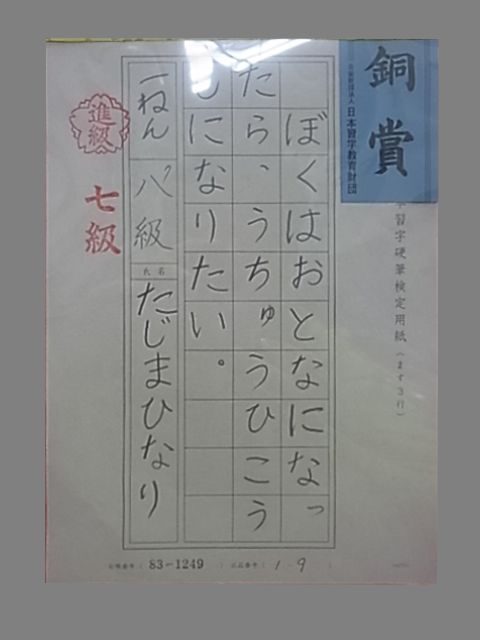 銅賞
日本習字教育財団
習字硬筆検定用紙(ます3行)
ぼくはおとなになっ
たら、うちゅうひこう
しになりたい。
一ねん
八級
氏名
たじまひなり
進級
七級
83-1249
1-9